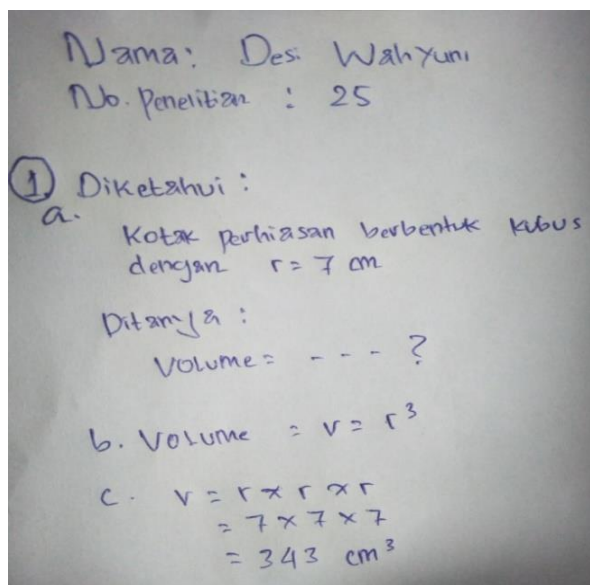 Nama: Desi Wahyuni
No. Penelitian : 25
① Diketahui :
a.
Kotak perhiasan berbentuk kubus
dengan r = 7 cm
Ditanya :
Volume = - - - ?
b. Volume = v = r³
c. v = r x r x r
= 7 x 7 x 7
= 343 cm³